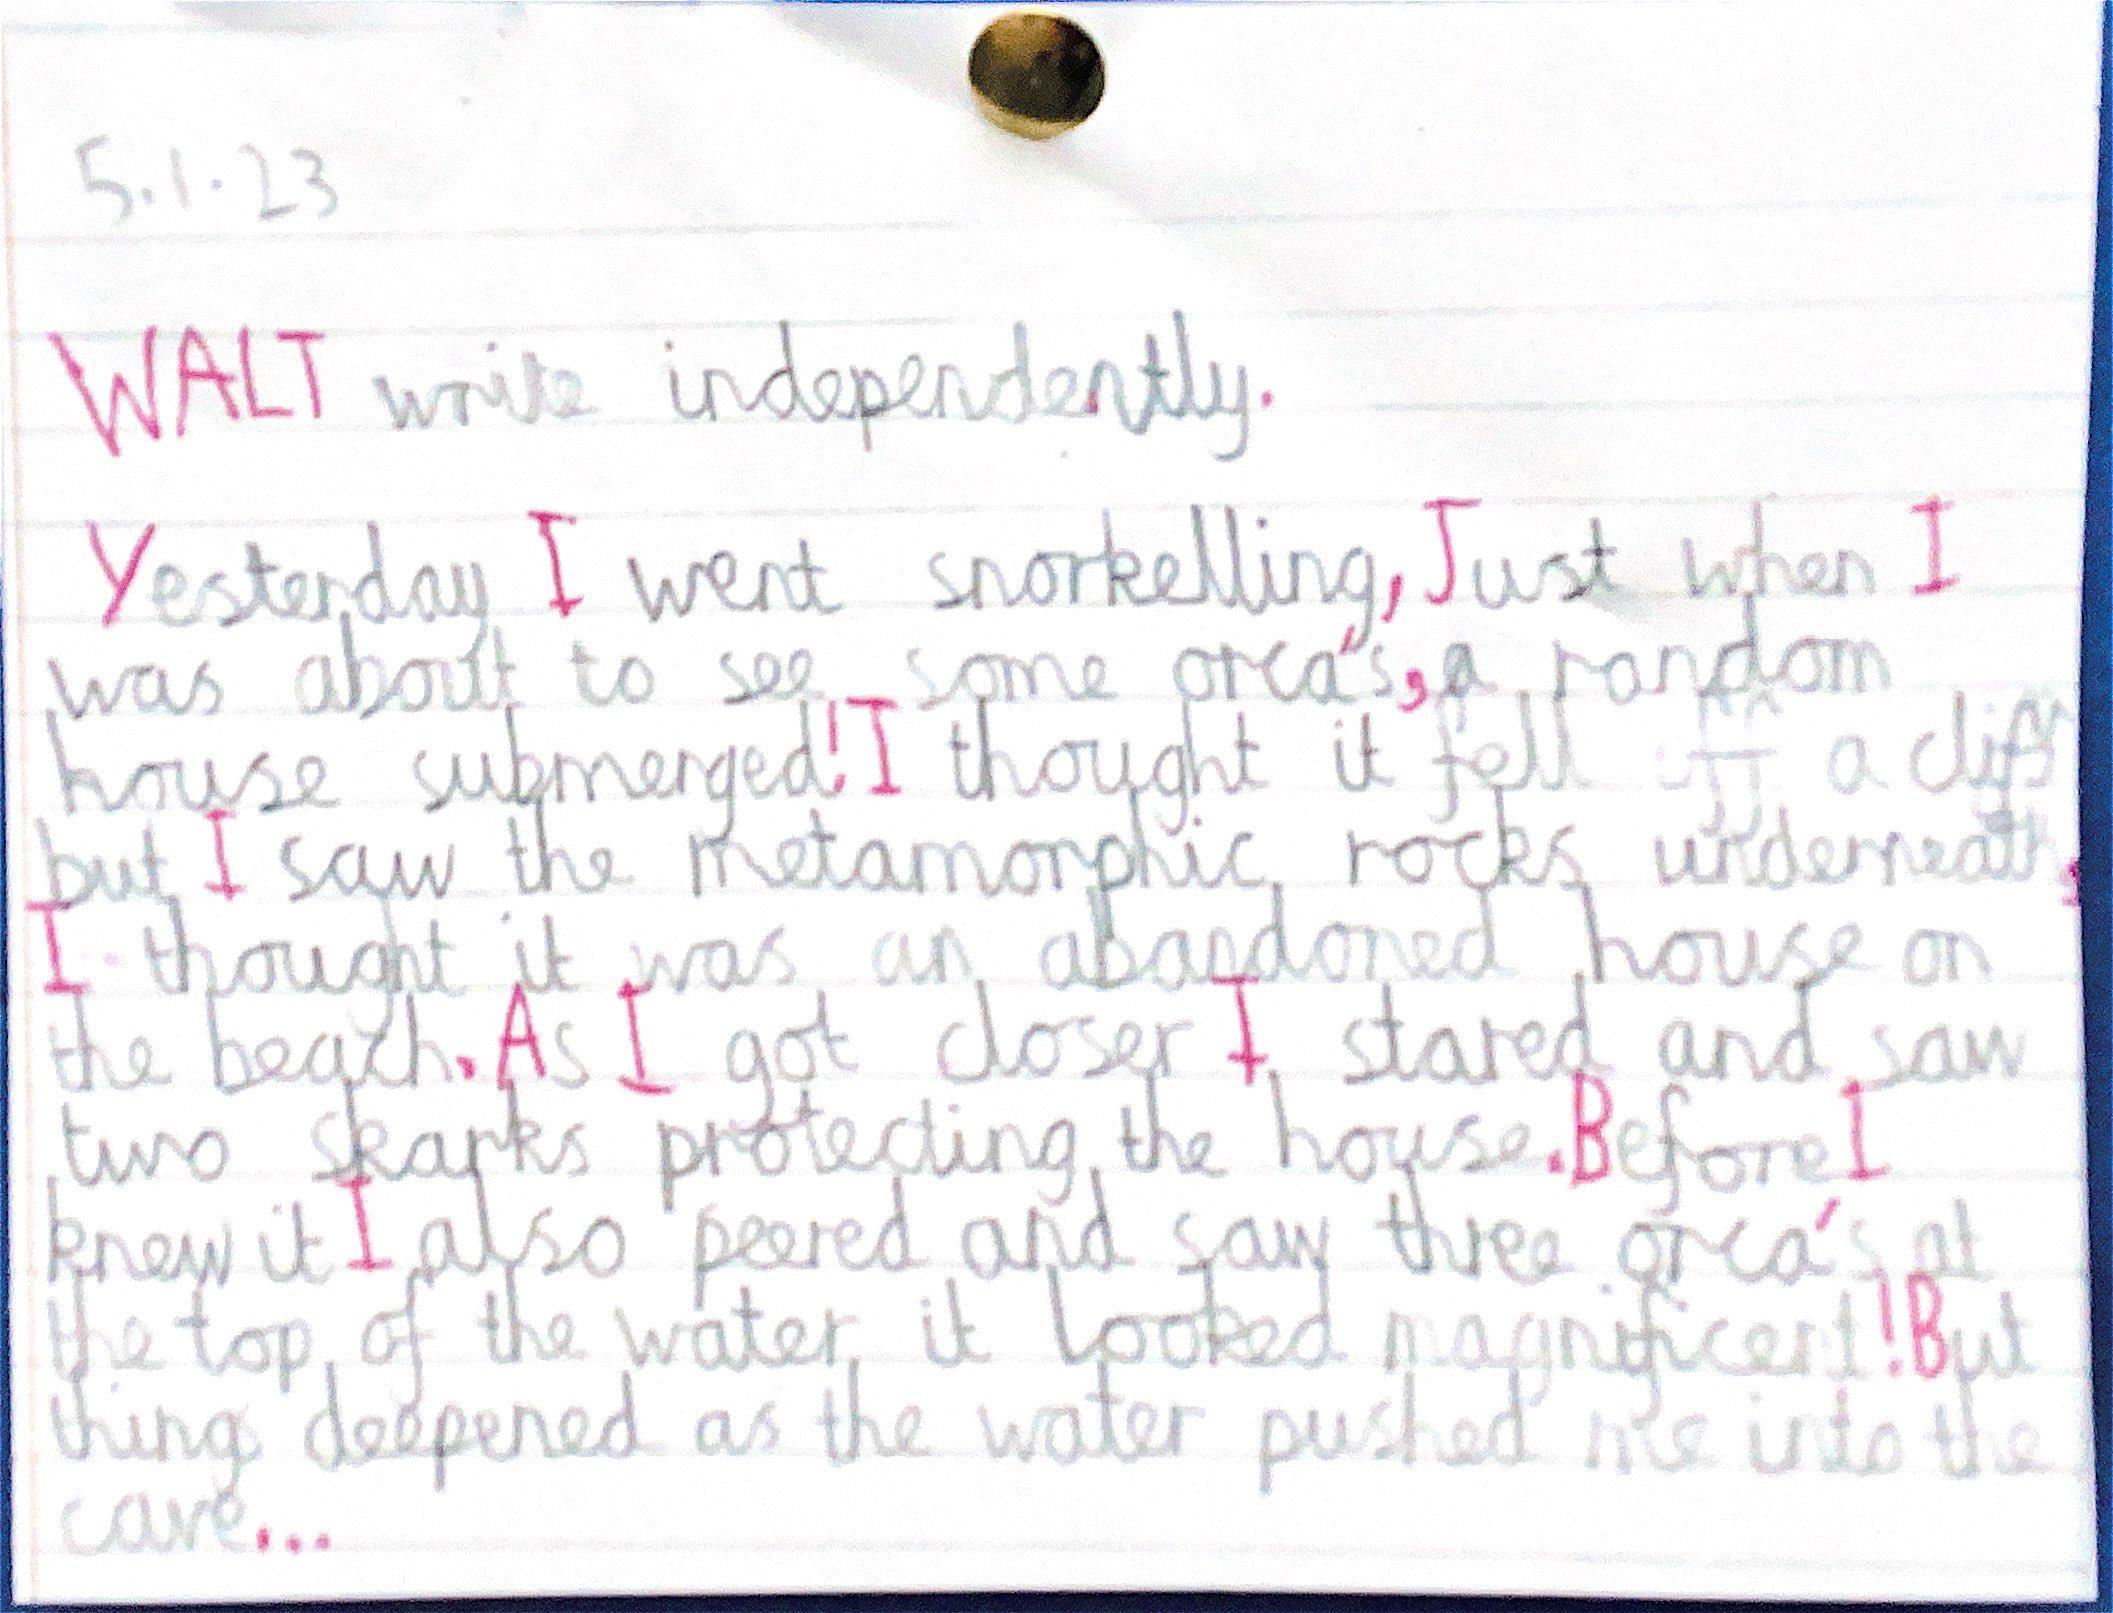 5.1.23
WALT write independently.
Yesterday I went snorkelling, Just when I
was about to see some orca's, a random
house submerged! I thought it fell off a cliff
but I saw the metamorphic rocks underneath,
I thought it was an abandoned house on
the beach. As I got closer I stared and saw
two skarks protecting the house. Before I
knew it I also peered and saw three orca's at
the top of the water it looked magnificent! But
thing deepened as the water pushed me into the
cave...